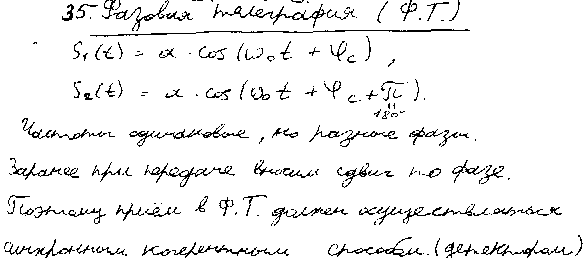 35. Фазовая телеграфия (Ф.Т.)
S₁(t) = a · cos(ω₀t + φc),
S₂(t) = a · cos(ω₀t + φc + π).
180°
Частоты одинаковые, но разные фазы.
Заранее при передаче вносим сдвиг по фазе.
Поэтому приём в Ф.Т. должен осуществляться
синхронным когерентным способом. (детектором)